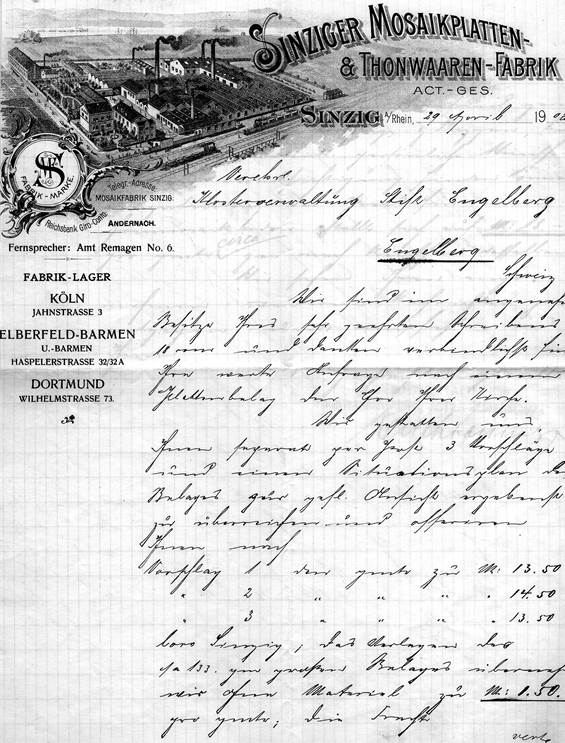 SINZIGER MOSAIKPLATTEN-
& THONWAAREN-FABRIK
ACT.-GES.
SINZIG A/Rhein, 29 April 190
MSF
FABRIK-MARKE.
Telegr.-Adresse:
MOSAIKFABRIK SINZIG.
Reichsbank Giro-Conto
ANDERNACH.
Fernsprecher: Amt Remagen No. 6.
FABRIK-LAGER
KÖLN
JAHNSTRASSE 3
ELBERFELD-BARMEN
U.-BARMEN
HASPELERSTRASSE 32/32A
DORTMUND
WILHELMSTRASSE 73.
Verehrl.
Klosterverwaltung Stift Engelberg
Engelberg
Schweiz
Wir sind im angeneh
Besitze Ihres sehr geehrten Schreibens
18 und danken verbindlichst für
Ihre werte Anfrage nach einem
Plattenbelag der Ihrer Kirche.
Wir gestatten uns,
Ihnen separat per Post 3 Vorschläge
und einen Situationsplan des
Belages zur gefl. Ansicht ergebenst
zu überreichen und offeriren
Ihnen nach
Vorschlag 1 den qmtr zu M: 13.50
" 2 " " " " 14.50
" 3 " " " " 13.50
Sinzig, das Verlegen des
ca 133. qm großen Belages überneh
wir ohne Material zu M: 1.50.
pro qmtr; die Fracht